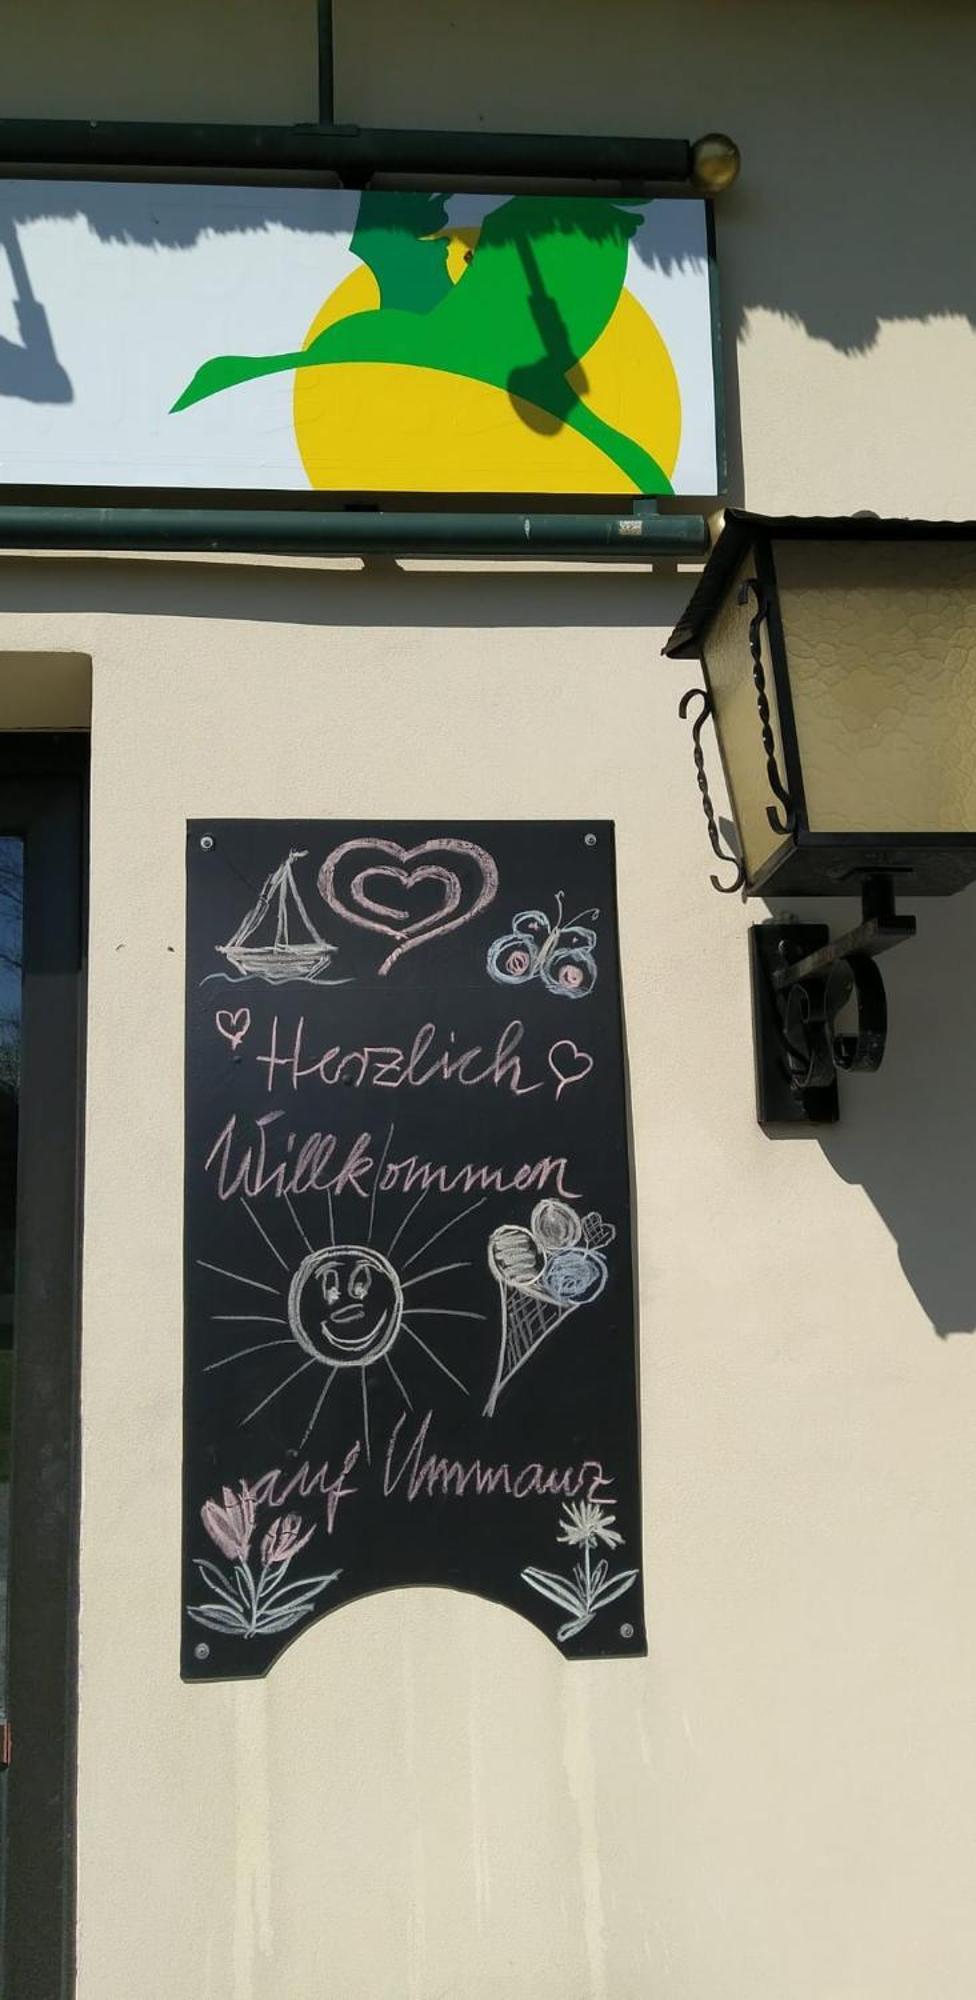 Herzlich
Willkommen
auf Ummanz